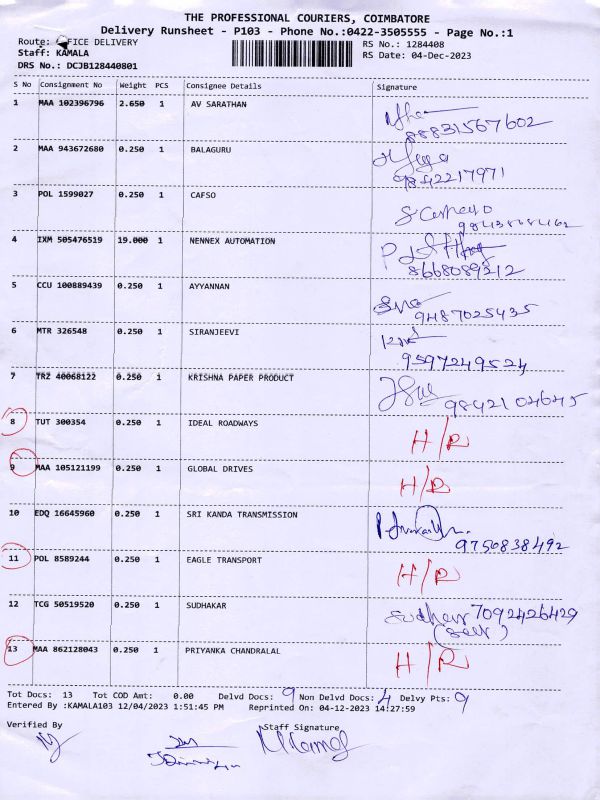 THE PROFESSIONAL COURIERS, COIMBATORE
Delivery Runsheet - P103 - Phone No.:0422-3505555 - Page No.:1
Route: OFFICE DELIVERY RS No.: 1284408
Staff: KAMALA RS Date: 04-Dec-2023
DRS No.: DCJB128440801
S No Consignment No Weight PCS Consignee Details Signature
1 MAA 102396796 2.650 1 AV SARATHAN
88831567602
2 MAA 943672680 0.250 1 BALAGURU
9842217971
3 POL 1599027 0.250 1 CAFSO
4 IXM 505476519 19.000 1 NENNEX AUTOMATION
8668089312
5 CCU 100889439 0.250 1 AYYANNAN
9487025435
6 MTR 326548 0.250 1 SIRANJEEVI
9597249524
7 TRZ 40068122 0.250 1 KRISHNA PAPER PRODUCT
9842104645
8 TUT 300354 0.250 1 IDEAL ROADWAYS H/R
9 MAA 105121199 0.250 1 GLOBAL DRIVES H/R
10 EDQ 16645960 0.250 1 SRI KANDA TRANSMISSION
9750838492
11 POL 8589244 0.250 1 EAGLE TRANSPORT H/R
12 TCG 50519520 0.250 1 SUDHAKAR 7092426429
(Self)
13 MAA 862128043 0.250 1 PRIYANKA CHANDRALAL H/R
Tot Docs: 13 Tot COD Amt: 0.00 Delvd Docs: 9 Non Delvd Docs: 4 Delvy Pts: 9
Entered By :KAMALA103 12/04/2023 1:51:45 PM Reprinted On: 04-12-2023 14:27:59
Verified By Staff Signature